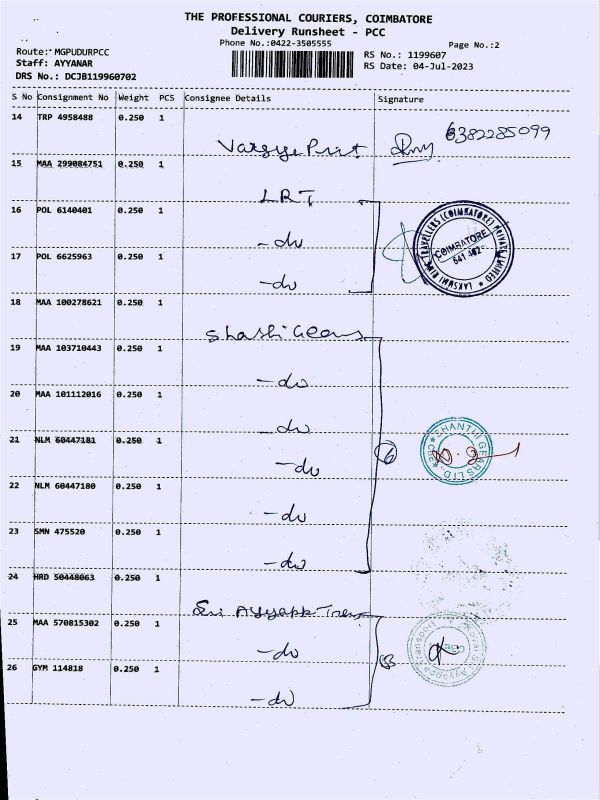 THE PROFESSIONAL COURIERS, COIMBATORE
Delivery Runsheet - PCC
Phone No.:0422-3505555
Page No.:2
Route: MGPUDURPCC
Staff: AYYANAR
DRS No.: DCJB119960702
RS No.: 1199607
RS Date: 04-Jul-2023
S No Consignment No Weight PCS Consignee Details Signature
14 TRP 4958488 0.250 1
Print 6382285099
15 MAA 299084751 0.250 1
LRT
16 POL 6140401 0.250 1
-do
17 POL 6625963 0.250 1
-do
LAKSHMI RING TRAVELLERS (COIMBATORE) PRIVATE LIMITED
COIMBATORE
641 402
18 MAA 100278621 0.250 1
Shathi Gears
19 MAA 103710443 0.250 1
-do
20 MAA 101112016 0.250 1
-do
21 NLM 60447181 0.250 1
-do
6
SHANTHI GEARS LTD.
22 NLM 60447180 0.250 1
-do
23 SMN 475520 0.250 1
-do
24 HRD 50448063 0.250 1
Sri Ayyappa
25 MAA 570815302 0.250 1
-do
26 GYM 114818 0.250 1
-do